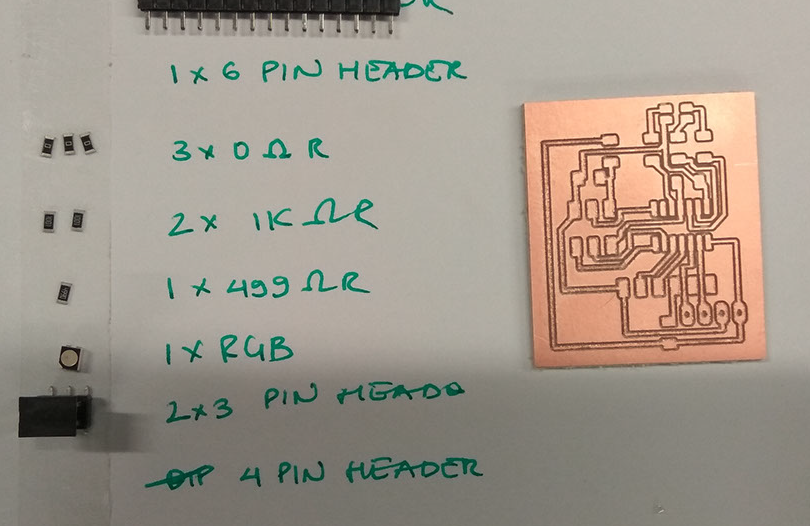 1 x 6 PIN HEADER
3 x 0 Ω R
2 x 1K ΩR
1 x 499 ΩR
1 x RGB
2x3 PIN HEADO
4 PIN HEADER